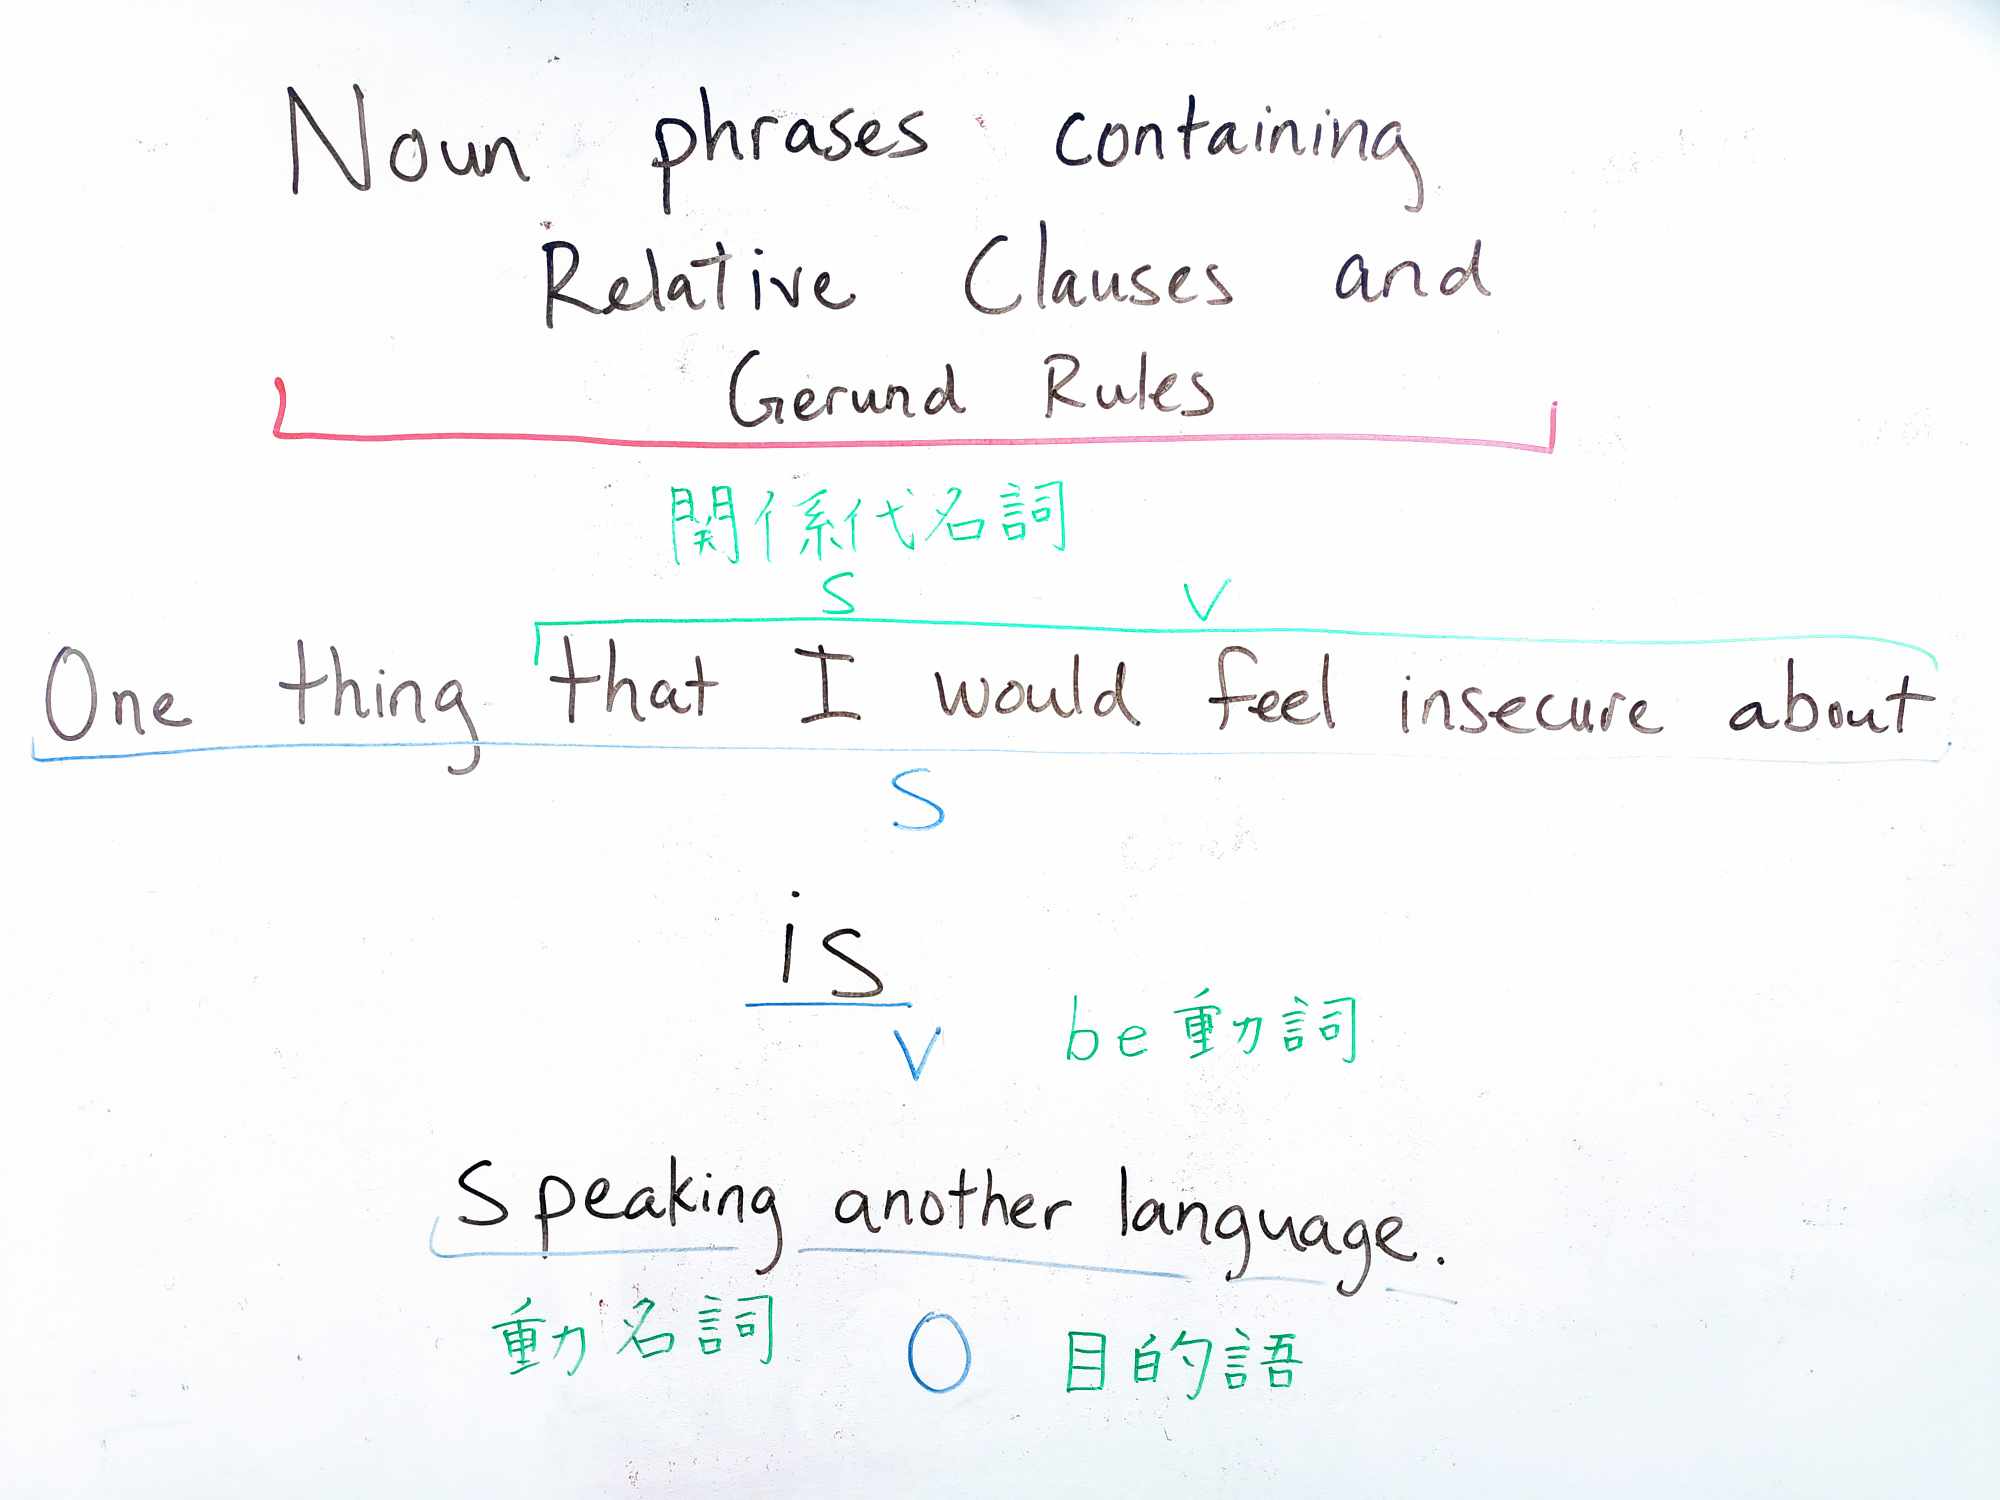 Noun phrases containing
Relative Clauses and
Gerund Rules
関係代名詞
S V
One thing that I would feel insecure about
S
is
V be動詞
Speaking another language.
動名詞 O 目的語